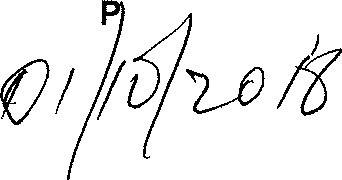 P
01/10/2018